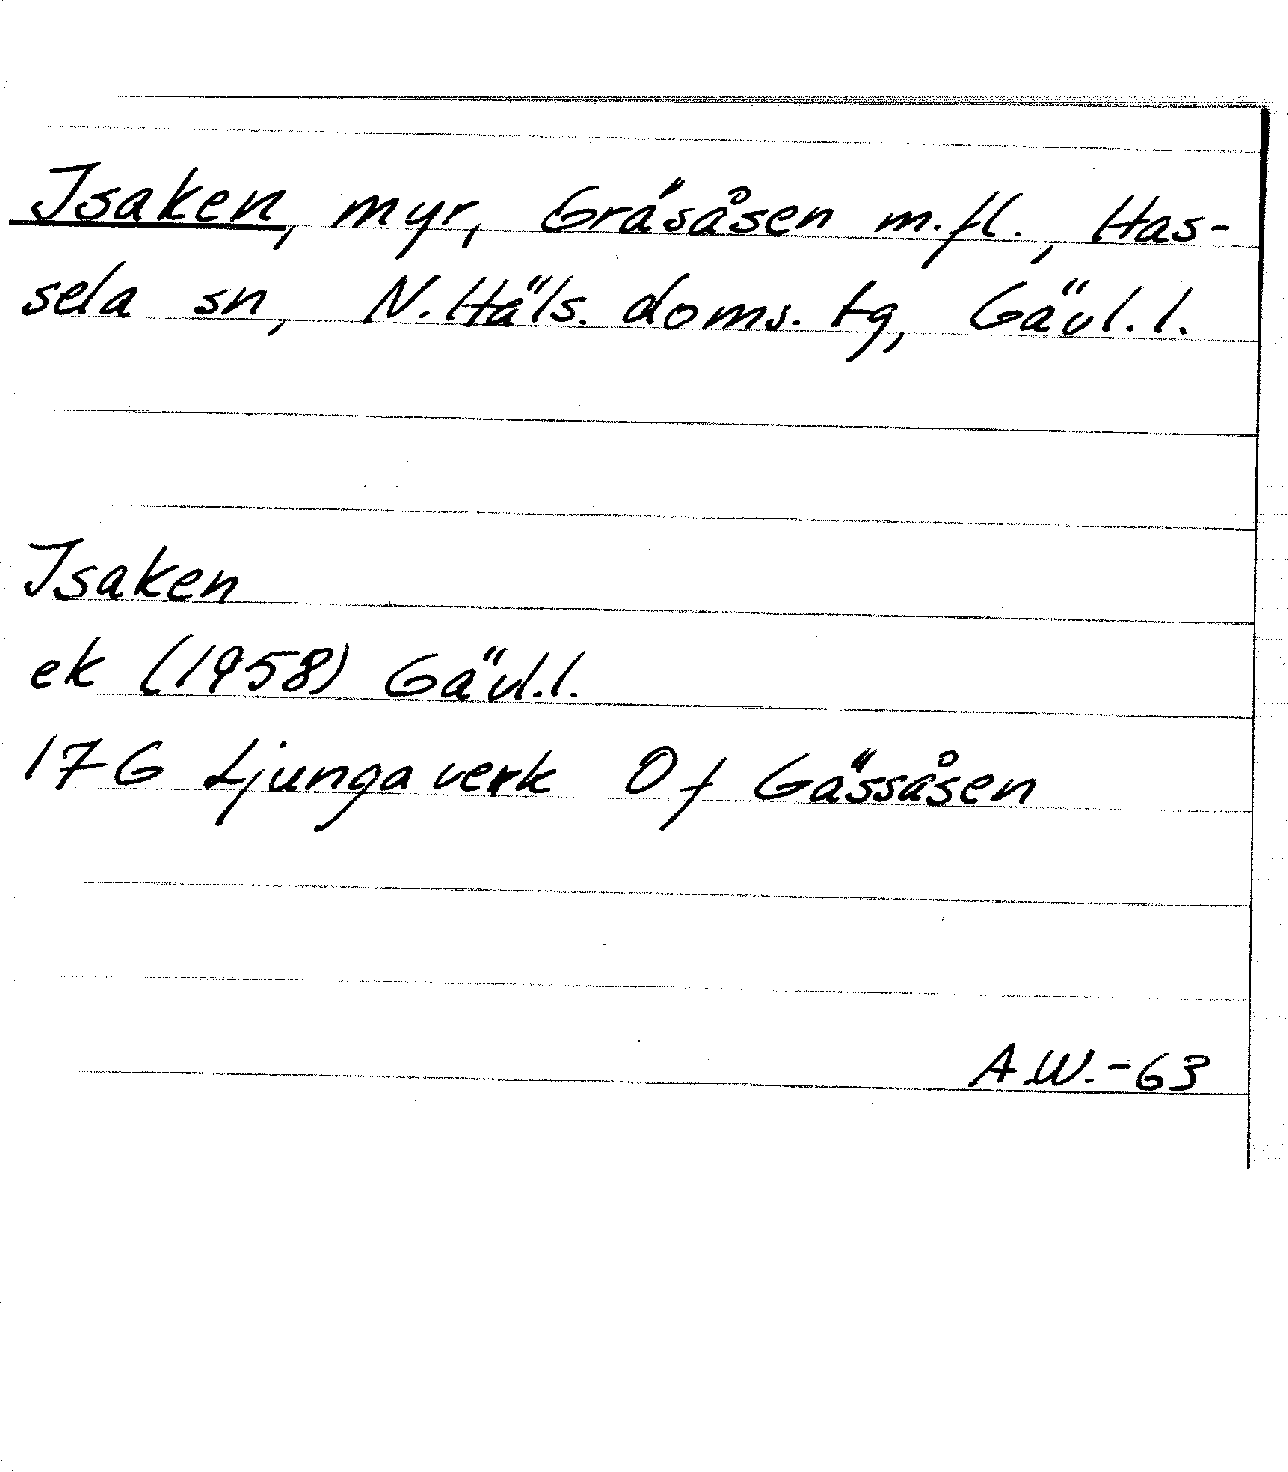 Isaken, myr, Gräsåsen m.fl., Has-
sela sn, N.Häls. doms. tg, Gävl.l.
Isaken
ek (1958) Gävl.l.
17G Ljungaverk 0f Gässåsen
A.W.-63